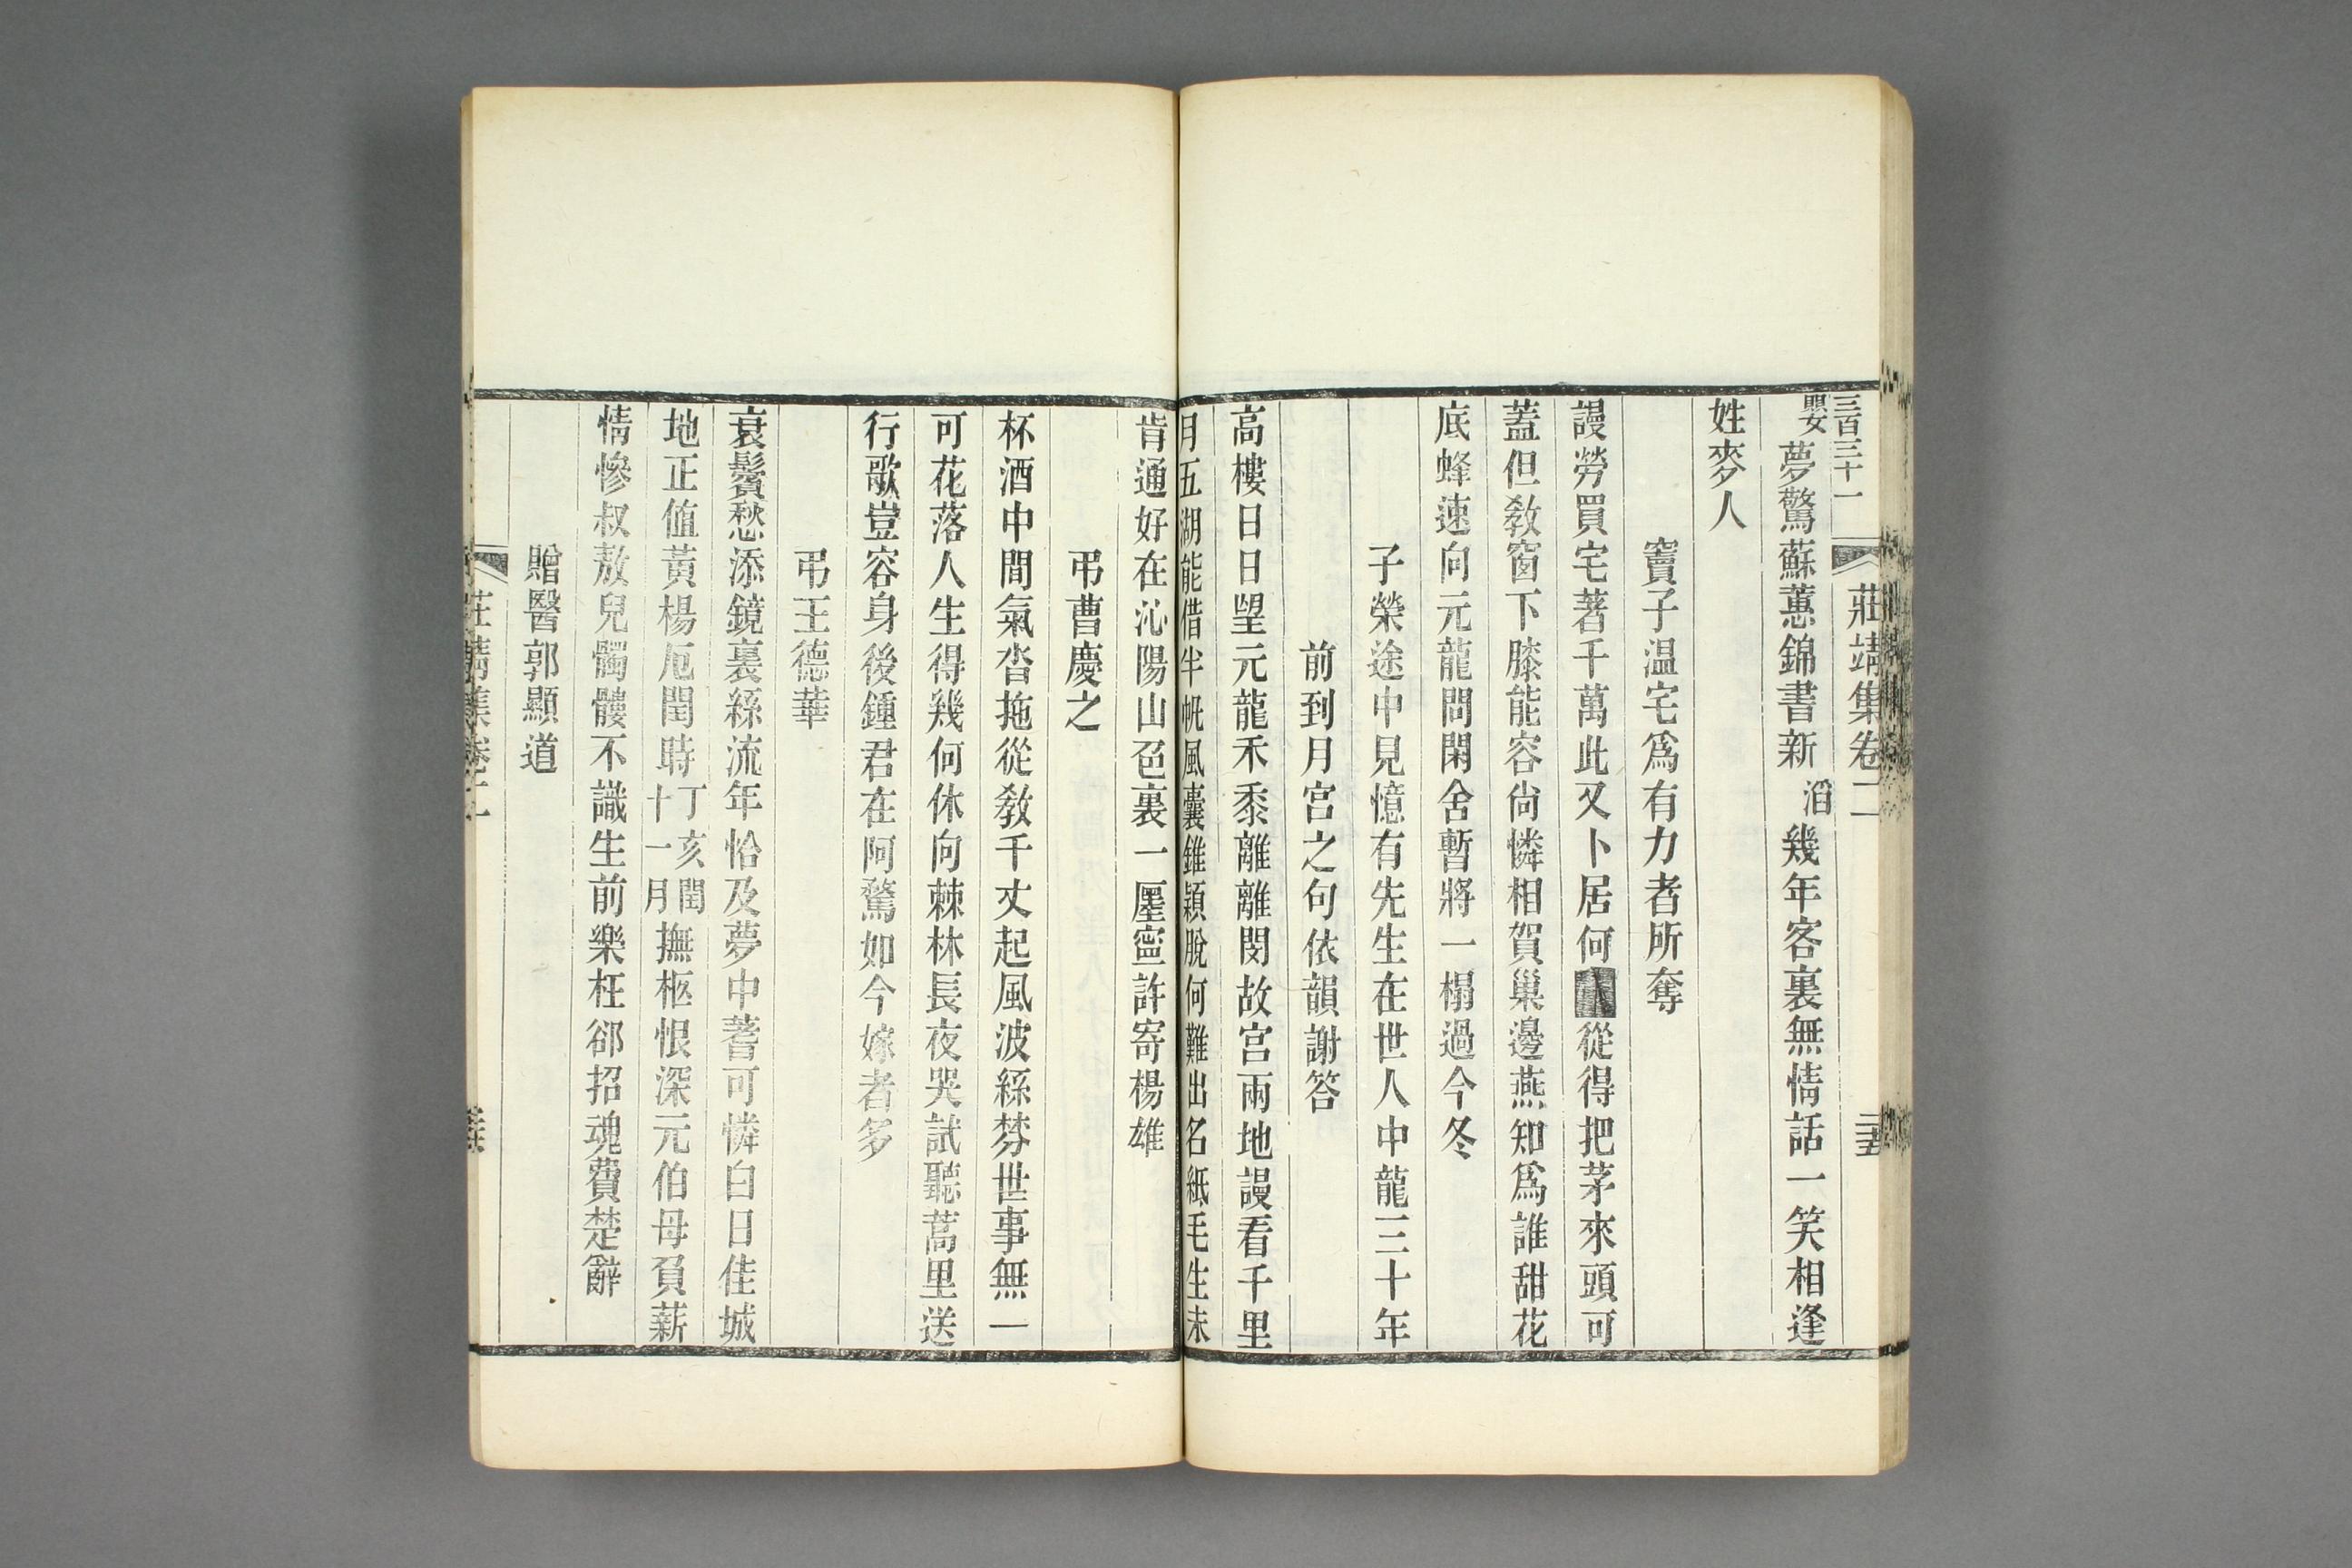 三百三十一 莊靖集卷二 二十五
嬰 夢驚蘇蕙錦書新 滔 幾年客裏無情話一笑相逢
姓麥人
竇子温宅爲有力者所奪
謾勞買宅著千萬此又卜居何 從得把茅來頭可
蓋但教窗下膝能容尙憐相賀巢邊燕知爲誰甜花
底蜂速向元龍問閑舍暫將一榻過今冬
子榮途中見憶有先生在世人中龍三十年
前到月宮之句依韻謝答
高樓日日望元龍禾黍離離閔故宮兩地謾看千里
月五湖能借半帆風囊錐穎脫何難出名紙毛生未
肯通好在沁陽山色裏一廛寧許寄楊雄
弔曹慶之
杯酒中間氣沓拖從教千丈起風波絲棼世事無一
可花落人生得幾何休向棘林長夜哭試聽蒿里送
行歌豈容身後鍾君在阿騖如今嫁者多
弔王德華
衰鬢愁添鏡裏絲流年恰及夢中蓍可憐白日佳城
地正值黃楊厄閏時丁亥閏十一月撫柩恨深元伯母負薪
情慘叔敖兒髑髏不識生前樂枉郤招魂費楚辭
贈醫郭顯道
莊靖集卷二